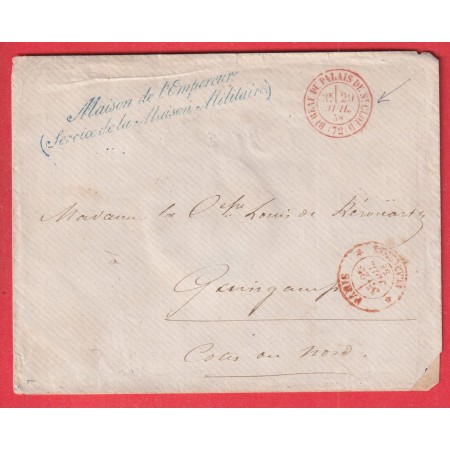 Maison de l'Empereur
(Service de la Maison Militaire)
BUREAU DU PALAIS DE ST CLOUD
29
JUIL.
58
(72)
Madame la Ctesse Louis de
Guingamp
Cotes du Nord.
PARIS